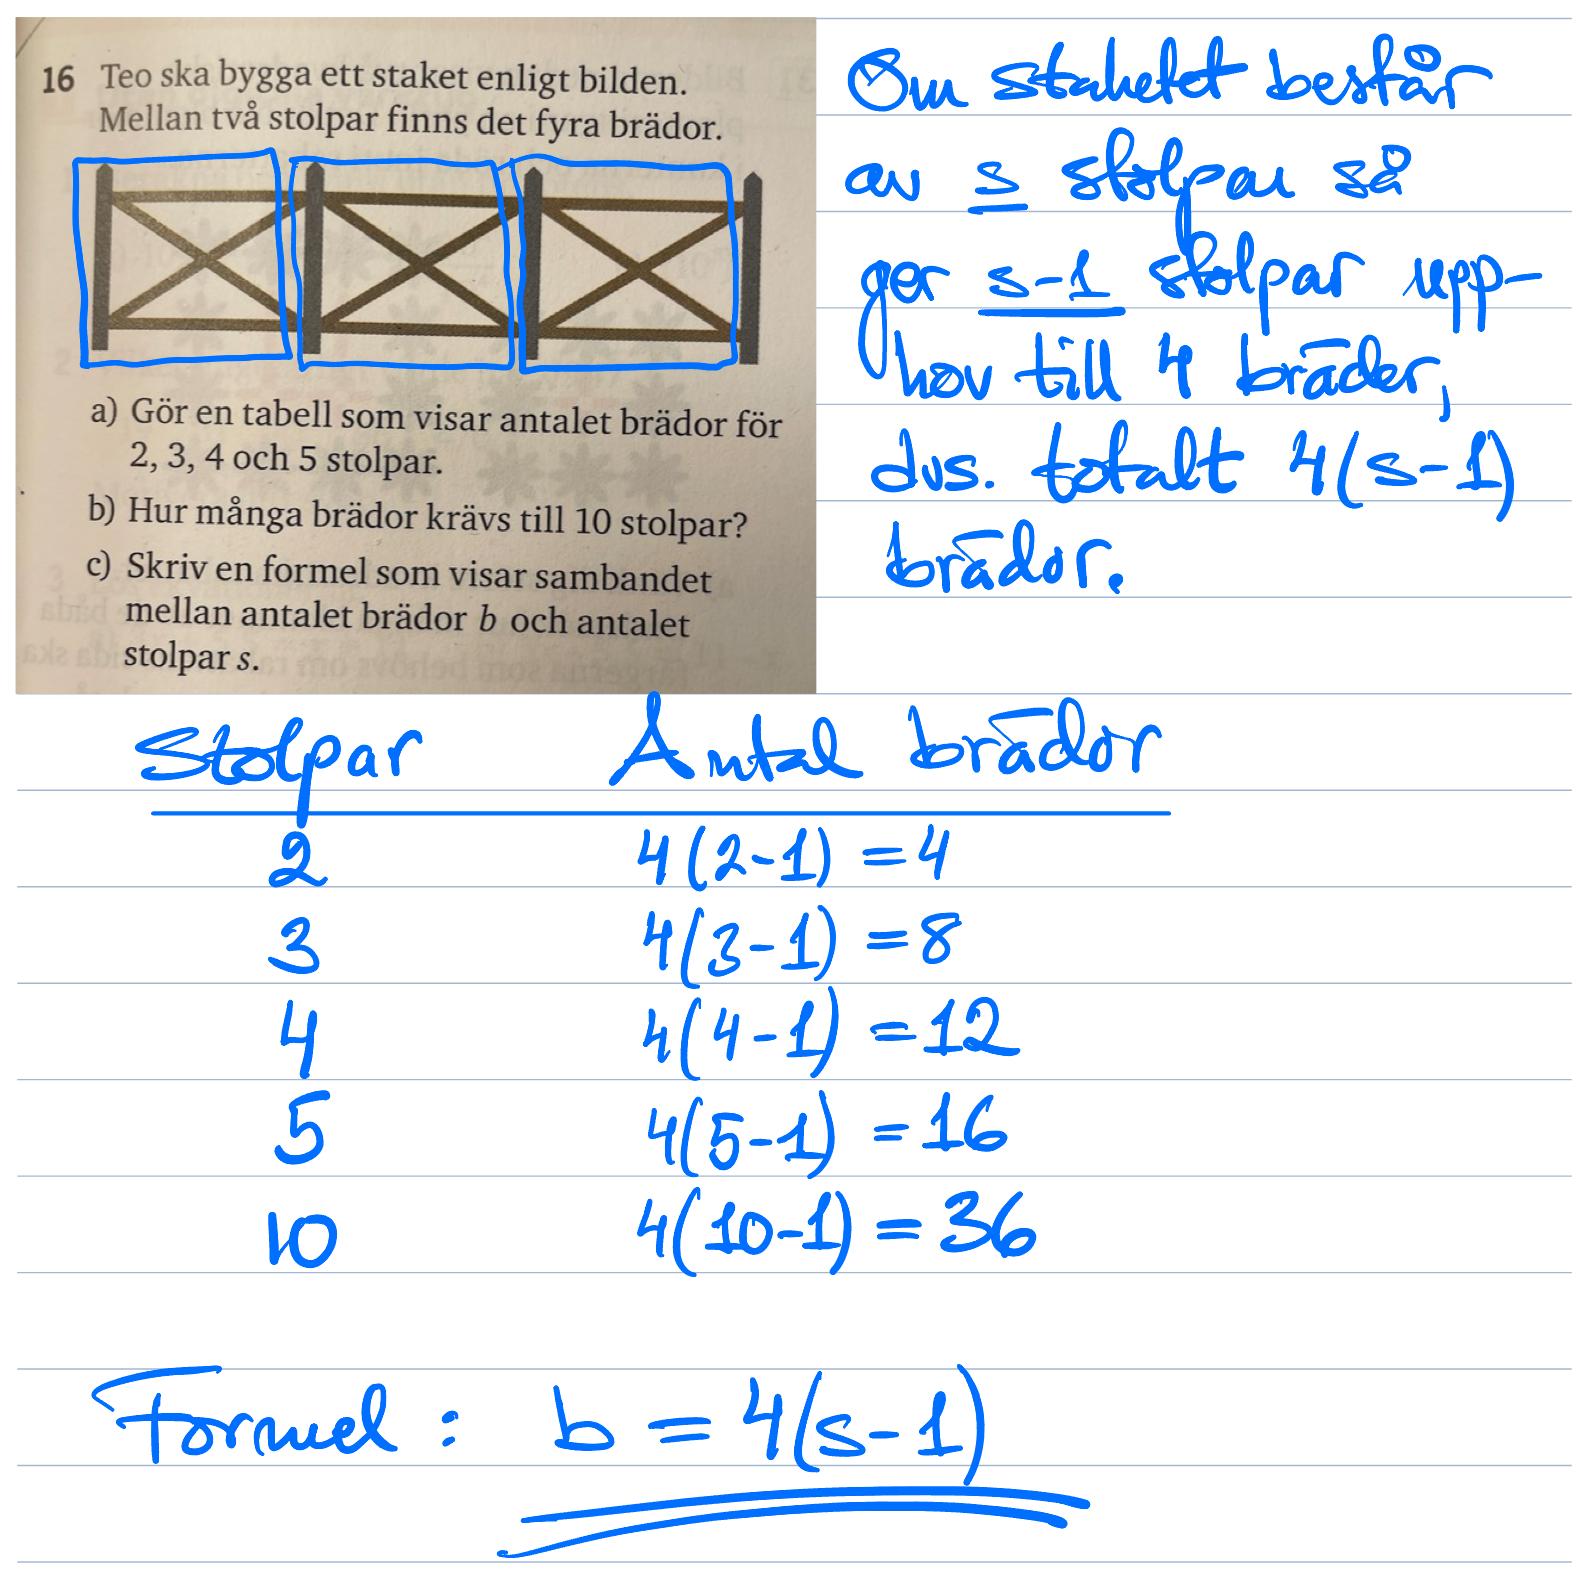 16 Teo ska bygga ett staket enligt bilden.
Mellan två stolpar finns det fyra brädor.
a) Gör en tabell som visar antalet brädor för
2, 3, 4 och 5 stolpar.
b) Hur många brädor krävs till 10 stolpar?
c) Skriv en formel som visar sambandet
mellan antalet brädor b och antalet
stolpar s.
Om staketet består
av s stolpar så
ger s-1 stolpar upp-
hov till 4 bräder,
dvs. totalt 4(s-1)
brädor.
Stolpar Antal brädor
2 4(2-1) = 4
3 4(3-1) = 8
4 4(4-1) = 12
5 4(5-1) = 16
10 4(10-1) = 36
Formel: b = 4(s-1)